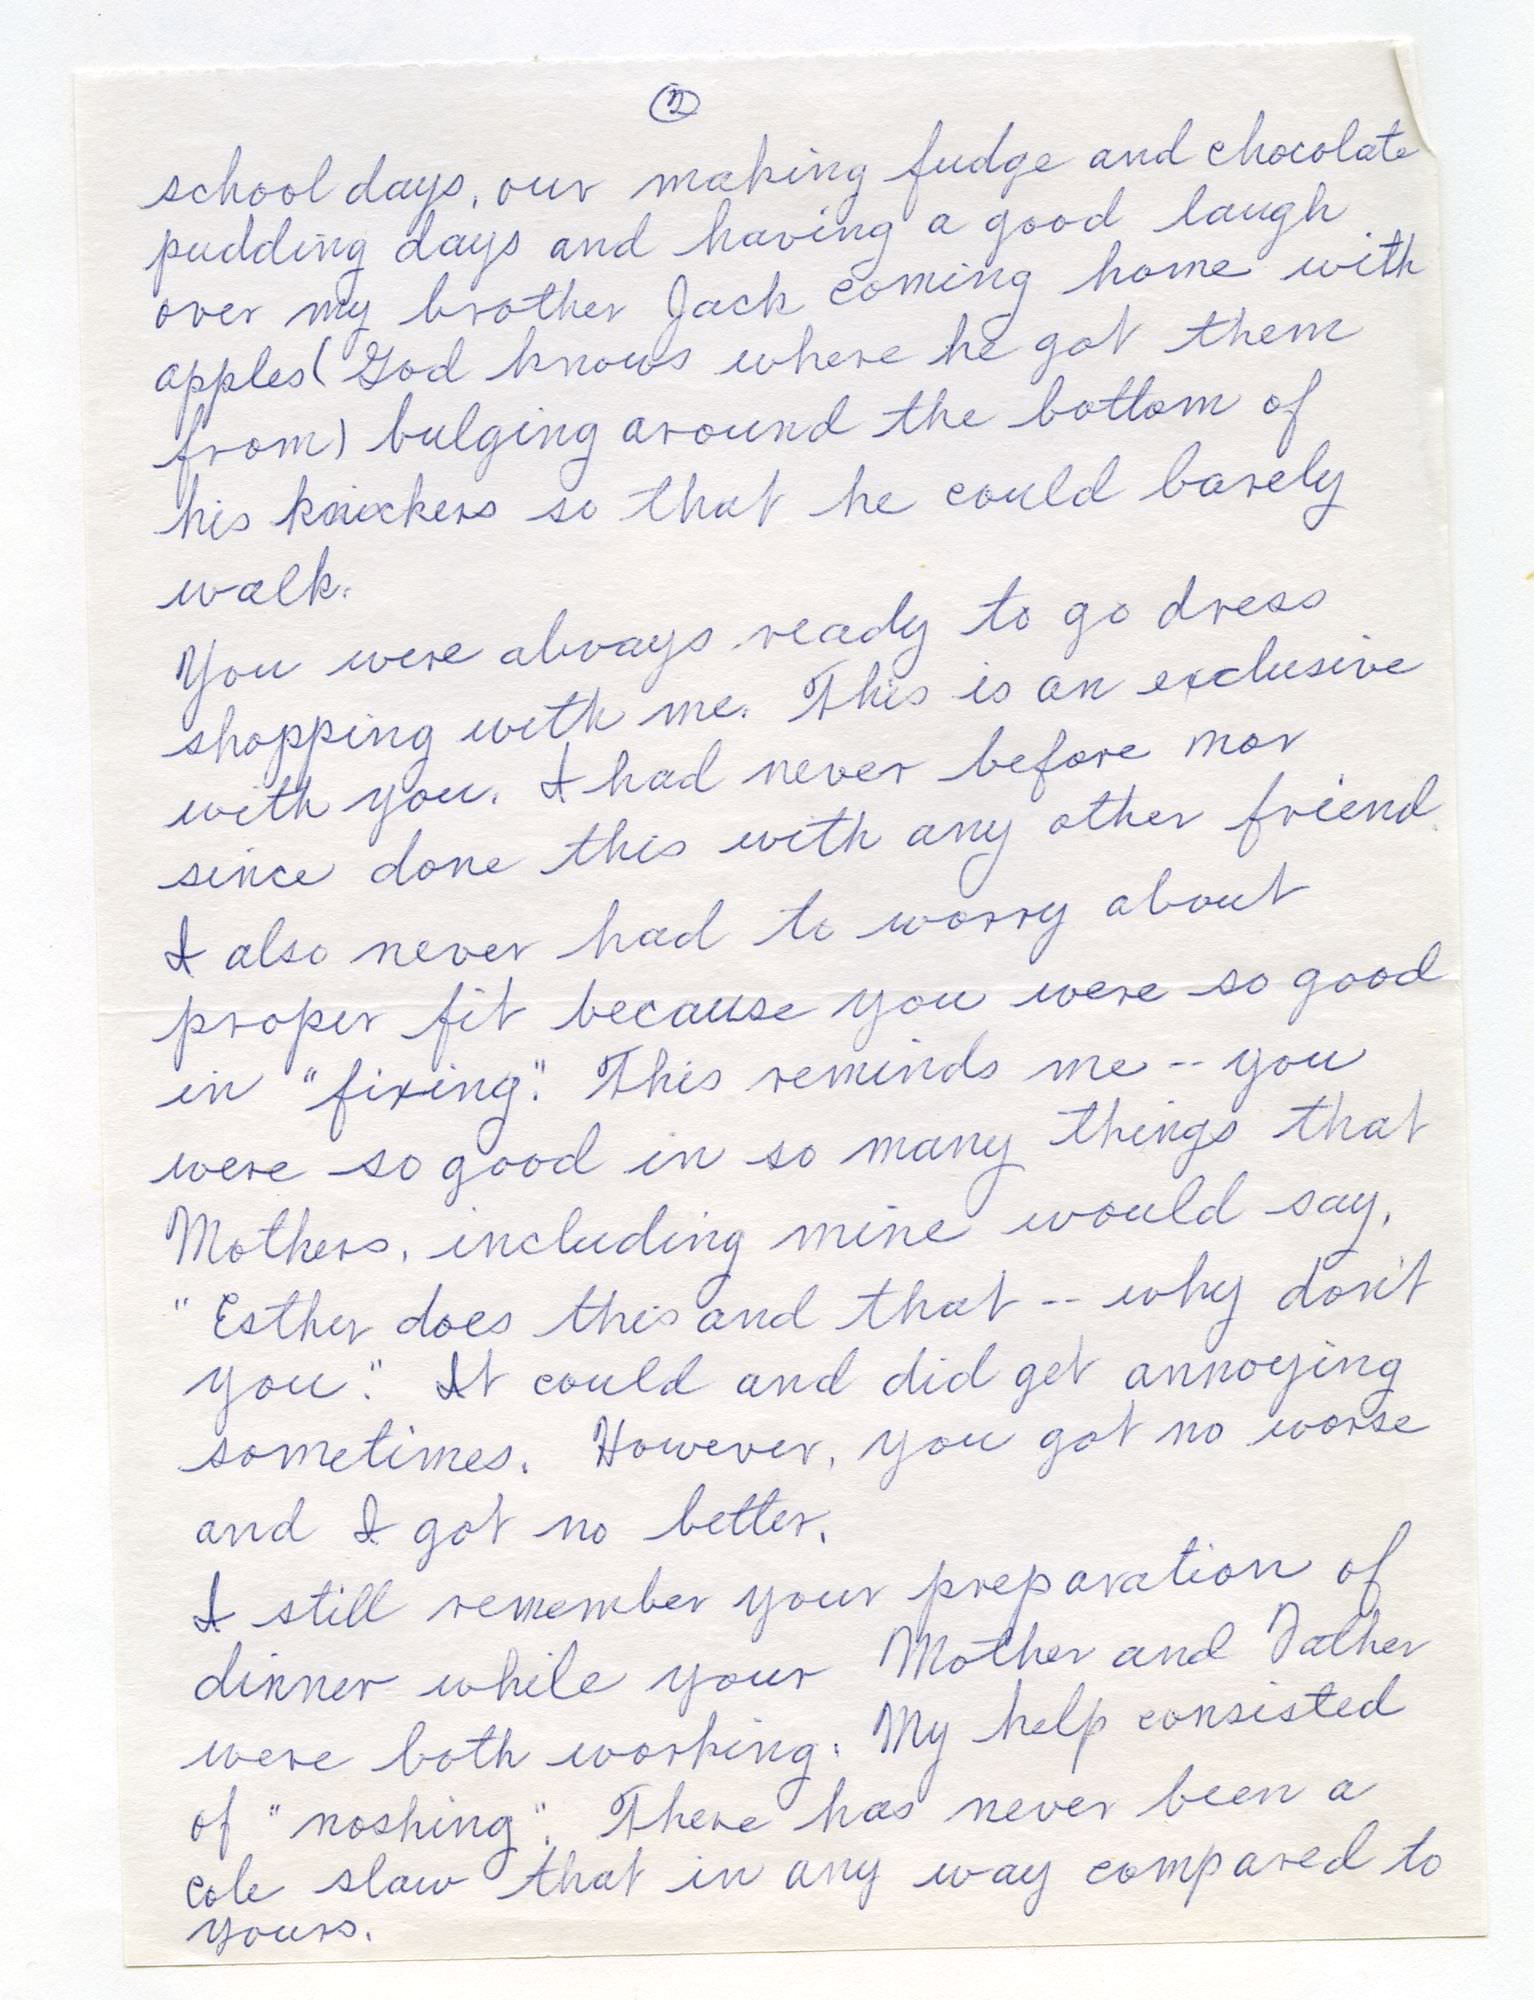 2
school days, our making fudge and chocolate
pudding days and having a good laugh
over my brother Jack coming home with
apples (God knows where he got them
from) bulging around the bottom of
his knickers so that he could barely
walk.
You were always ready to go dress
shopping with me. This is an exclusive
with you. I had never before nor
since done this with any other friend.
I also never had to worry about
proper fit because you were so good
in "fixing". This reminds me -- you
were so good in so many things that
Mothers, including mine would say,
"Esther does this and that -- why don't
you." It could and did get annoying
sometimes. However, you got no worse
and I got no better.
I still remember your preparation of
dinner while your Mother and Father
were both working. My help consisted
of "noshing". There has never been a
cole slaw that in any way compared to
yours.